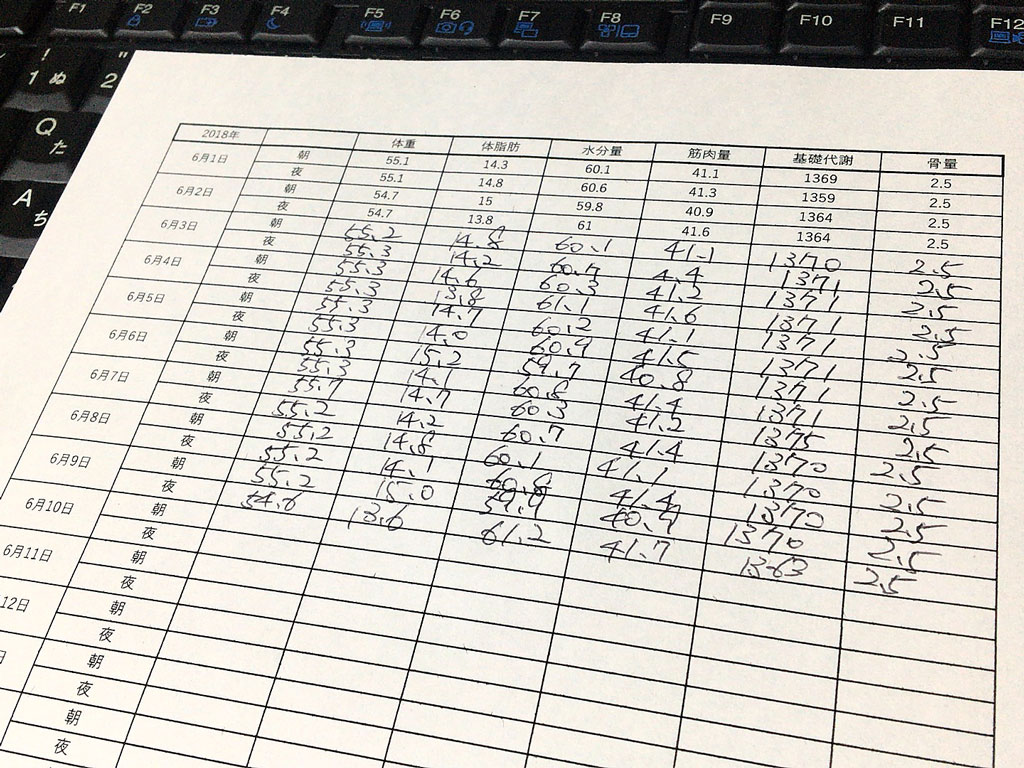 F1 F2 F3 F4 F5 F6 F7 F8 F9 F10 F11 F12
! 1 ぬ " 2
Q た
A ち
2018年 体重 体脂肪 水分量 筋肉量 基礎代謝 骨量
6月1日 朝 55.1 14.3 60.1 41.1 1369 2.5
夜 55.1 14.8 60.6 41.3 1359 2.5
6月2日 朝 54.7 15 59.8 40.9 1364 2.5
夜 54.7 13.8 61 41.6 1364 2.5
6月3日 朝 55.2 14.8 60.1 41.1 1370 2.5
夜 55.3 14.2 60.7 4.4 1371 2.5
6月4日 朝 55.3 14.6 60.3 41.2 1371 2.5
夜 55.3 13.8 61.1 41.6 1371 2.5
6月5日 朝 55.3 14.7 60.2 41.1 1371 2.5
夜 55.3 14.0 60.9 41.5 1371 2.5
6月6日 朝 55.3 15.2 59.7 40.8 1371 2.5
夜 55.3 14.1 60.8 41.4 1371 2.5
6月7日 朝 55.7 14.7 60.3 41.2 1375 2.5
夜 55.2 14.2 60.7 41.4 1370 2.5
6月8日 朝 55.2 14.8 60.1 41.1 1370 2.5
夜 55.2 14.1 60.8 41.4 1370 2.5
6月9日 朝 55.2 15.0 59.9 40.9 1370 2.5
夜 54.6 13.6 61.2 41.7 1363 2.5
6月10日 朝
夜
6月11日 朝
夜
12日 朝
夜
日 朝
夜
朝
夜